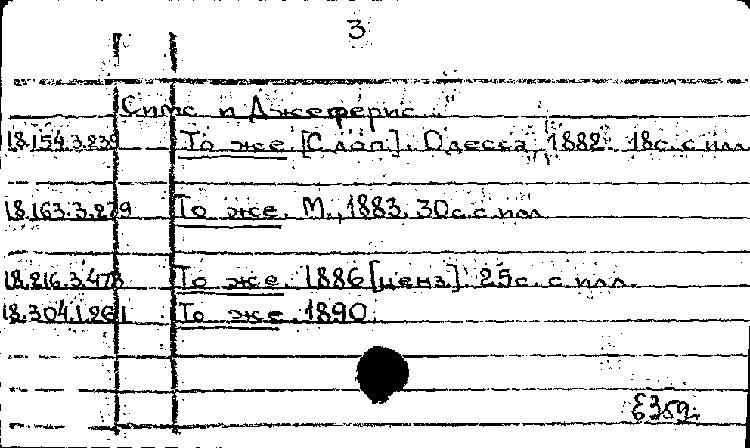 3
Симс и Джеферис
18.154.3.239 То же. [С доп]. Одесса, 1882. 18с. с илл.
18.163.3.279 То же. М., 1883. 30с. с илл
18.216.3.478 То же. 1886 [ценз]. 25с. с илл.
18.304.1.261 То же. 1890.
Е359.